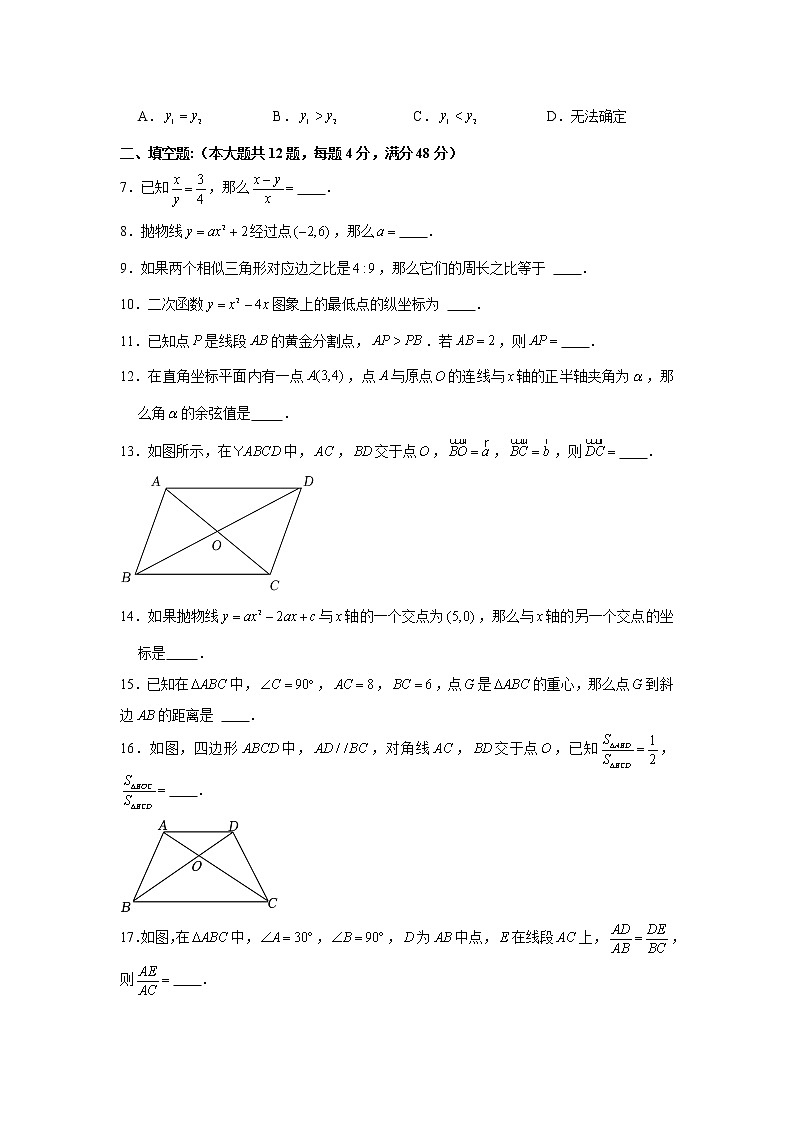 A．y₁ = y₂ B．y₁ > y₂ C．y₁ < y₂ D．无法确定
二、填空题:（本大题共 12 题，每题 4 分，满分 48 分）
7．已知 x/y = 3/4，那么 (x − y)/x = ____．
8．抛物线 y = ax² + 2 经过点 (−2,6)，那么 a = ____．
9．如果两个相似三角形对应边之比是 4 : 9，那么它们的周长之比等于 ____．
10．二次函数 y = x² − 4x 图象上的最低点的纵坐标为 ____．
11．已知点 P 是线段 AB 的黄金分割点，AP > PB．若 AB = 2，则 AP = ____．
12．在直角坐标平面内有一点 A(3,4)，点 A 与原点 O 的连线与 x 轴的正半轴夹角为 α，那
么角 α 的余弦值是____．
13．如图所示，在 YABCD 中，AC，BD 交于点 O，BO = a，BC = b，则 DC = ____．
A D
O
B C
14．如果抛物线 y = ax² − 2ax + c 与 x 轴的一个交点为 (5,0)，那么与 x 轴的另一个交点的坐
标是____．
15．已知在 ΔABC 中，∠C = 90°，AC = 8，BC = 6，点 G 是 ΔABC 的重心，那么点 G 到斜
边 AB 的距离是 ____．
16．如图，四边形 ABCD 中，AD / /BC，对角线 AC，BD 交于点 O，已知 S△ABD/S△BCD = 1/2，
S△BOC/S△BCD = ____．
A D
O
B C
17．如图，在 ΔABC 中，∠A = 30°，∠B = 90°，D 为 AB 中点，E 在线段 AC 上，AD/AB = DE/BC，
则 AE/AC = ____．